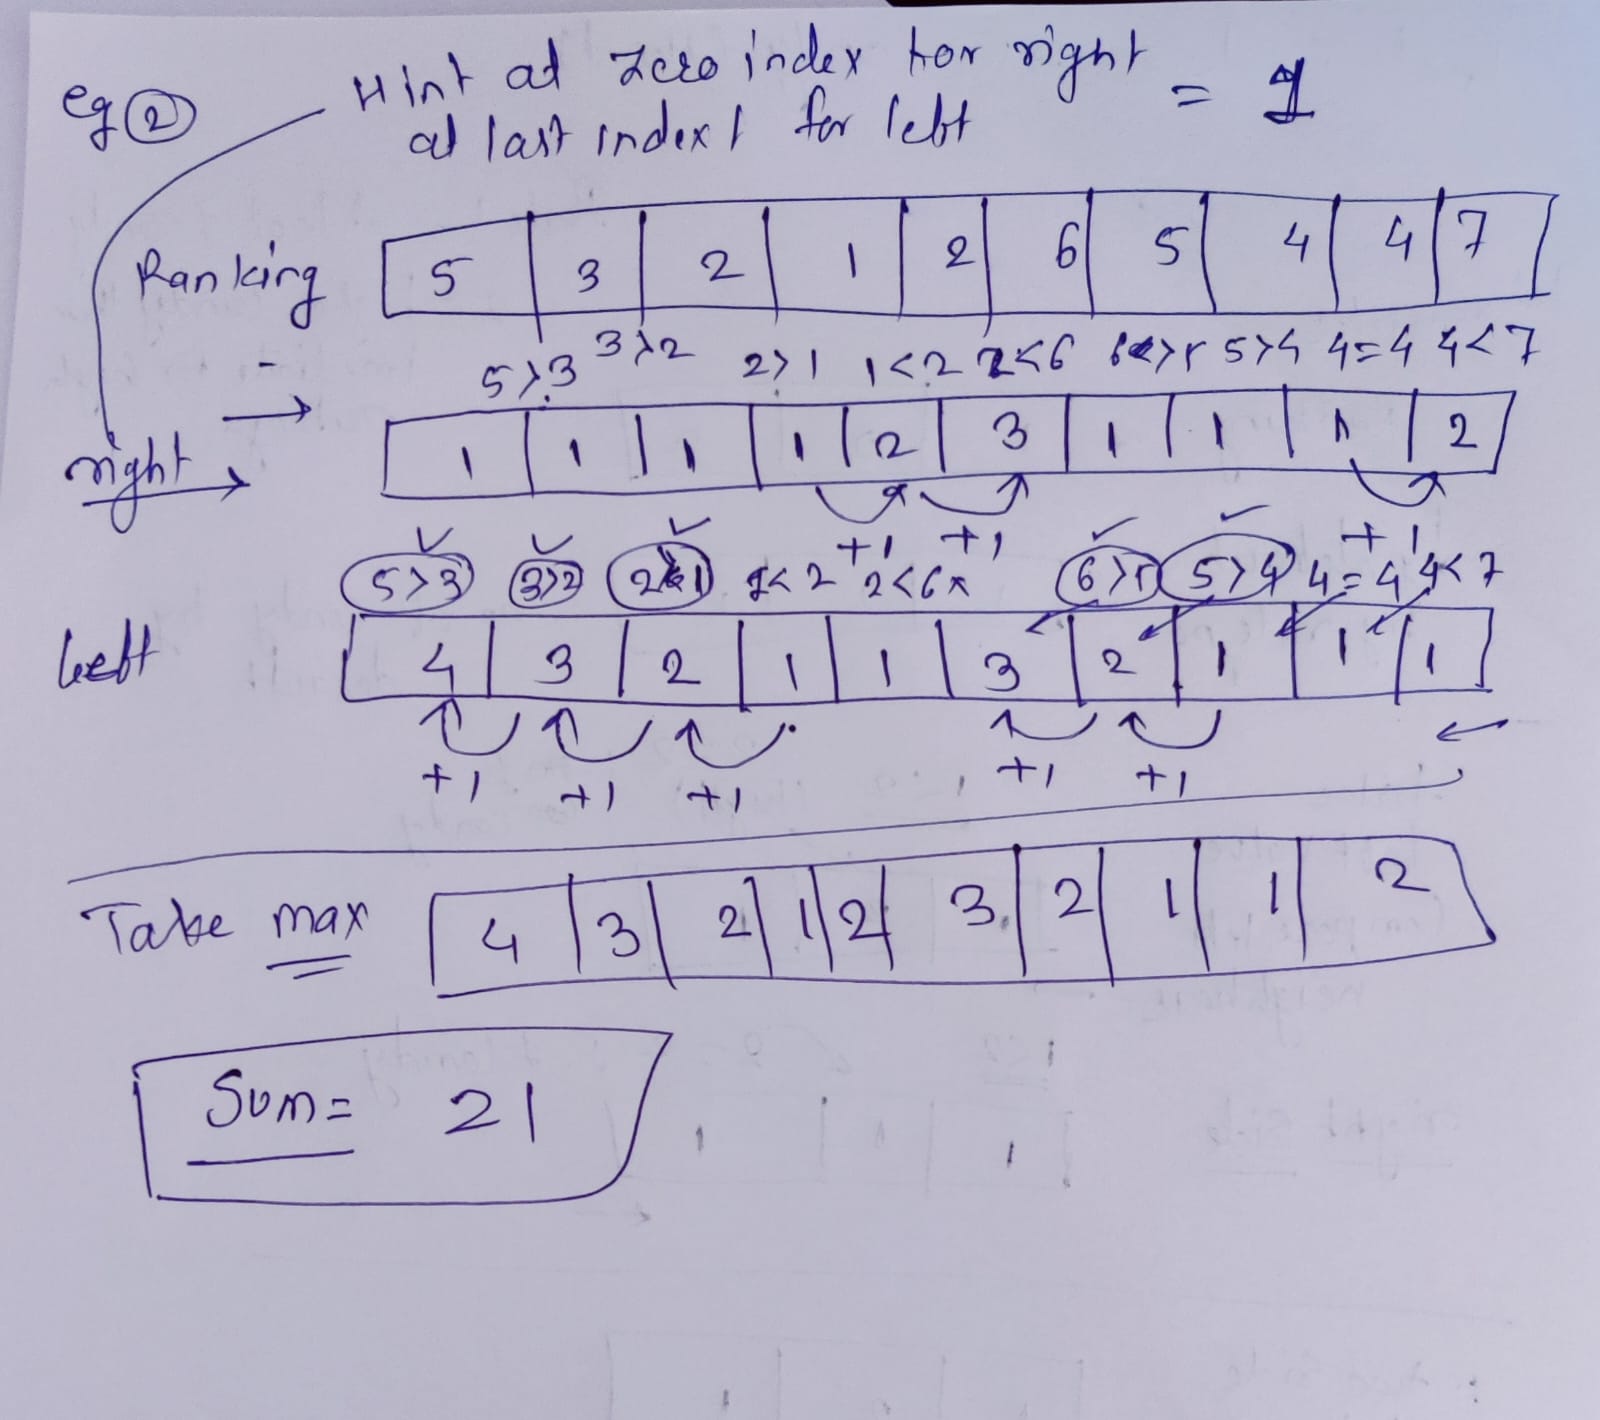 eg ②
Hint at zero index for right = 1
at last index 1 for left
Ranking 5 3 2 1 2 6 5 4 4 7
5>3 3>2 2>1 1<2 2<6 6>5 5>4 4=4 4<7
right 1 1 1 1 2 3 1 1 1 2
+1 +1 +1
5>3 3>2 2>1 1<2 2<6 x 6>5 5>4 4=4 4<7
left 4 3 2 1 1 3 2 1 1 1
+1 +1 +1 +1 +1
Take max 4 3 2 1 2 3 2 1 1 2
Sum= 21